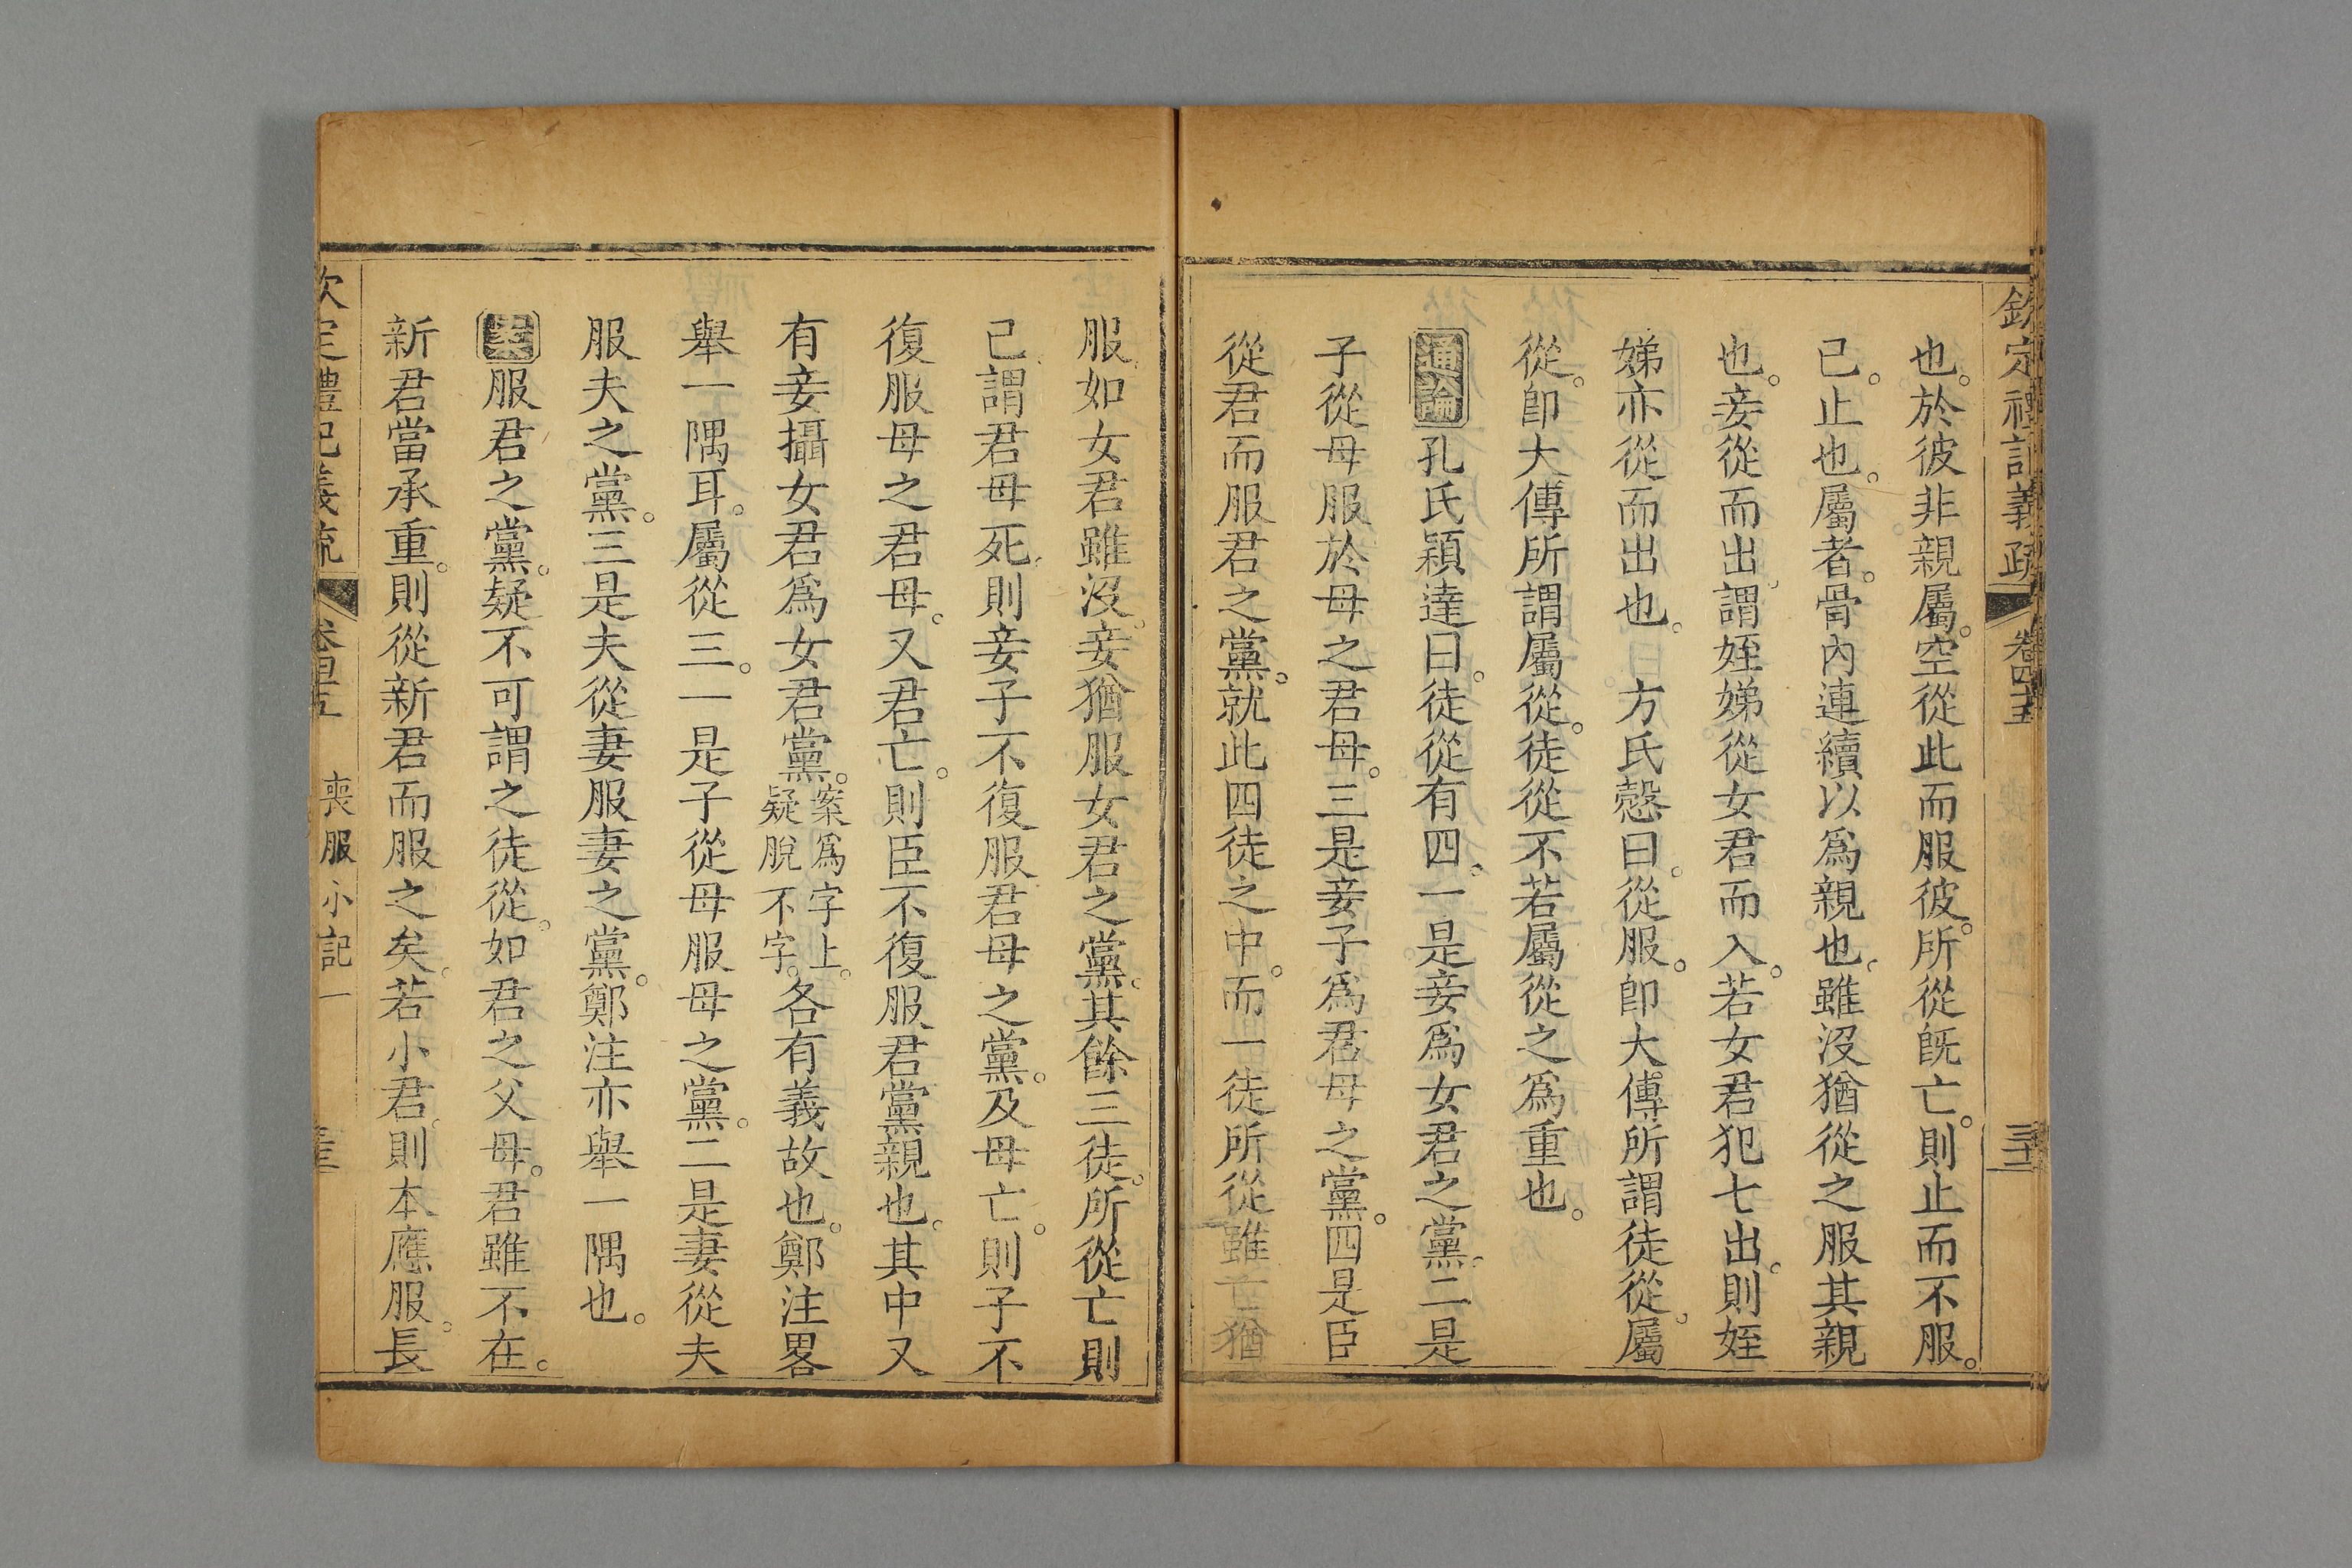 欽定禮記義疏 卷四十五 三十二
也。於彼非親屬。空從此而服彼。所從旣亡。則止而不服。
已。止也。屬者。骨內連續以爲親也。雖沒猶從之服其親
也。妾從而出。謂姪娣從女君而入。若女君犯七出。則姪
娣亦從而出也。 方氏慤曰。從服。卽大傳所謂徒從。屬
從。卽大傳所謂屬從。徒從不若屬從之爲重也。
通論孔氏穎達曰。徒從有四。一是妾爲女君之黨。二是
子從母服於母之君母。三是妾子爲君母之黨。四是臣
從君而服君之黨。就此四徒之中。而一徒所從雖亡猶
服如女君雖沒。妾猶服女君之黨。其餘三徒。所從亡則
已。謂君母死。則妾子不復服君母之黨。及母亡。則子不
復服母之君母。又君亡。則臣不復服君黨親也。其中又
有妾攝女君爲女君黨。案爲字上。疑脫不字。各有義故也。鄭注畧
舉一隅耳。屬從三。一是子從母服母之黨。二是妻從夫
服夫之黨。三是夫從妻服妻之黨。鄭注亦舉一隅也。
案服君之黨。疑不可謂之徒從。如君之父母。君雖不在。
新君當承重。則從新君而服之矣。若小君。則本應服。長
欽定禮記義疏 卷四十五 喪服小記一